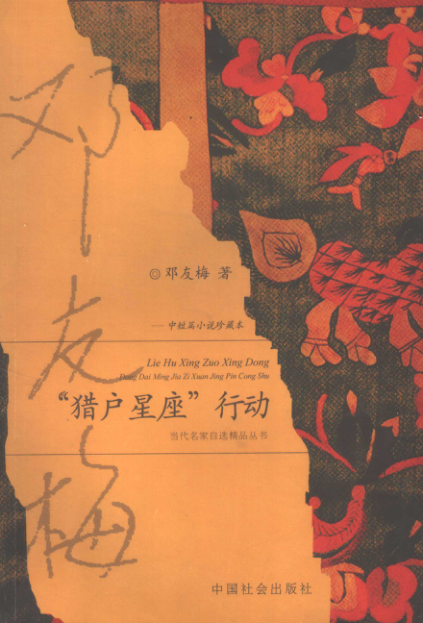 邓友梅
◎邓友梅 著
——中短篇小说珍藏本
Lie Hu Xing Zuo Xing Dong
Dang Dai Ming Jia Zi Xuan Jing Pin Cong Shu
“猎户星座”行动
当代名家自选精品丛书
中国社会出版社